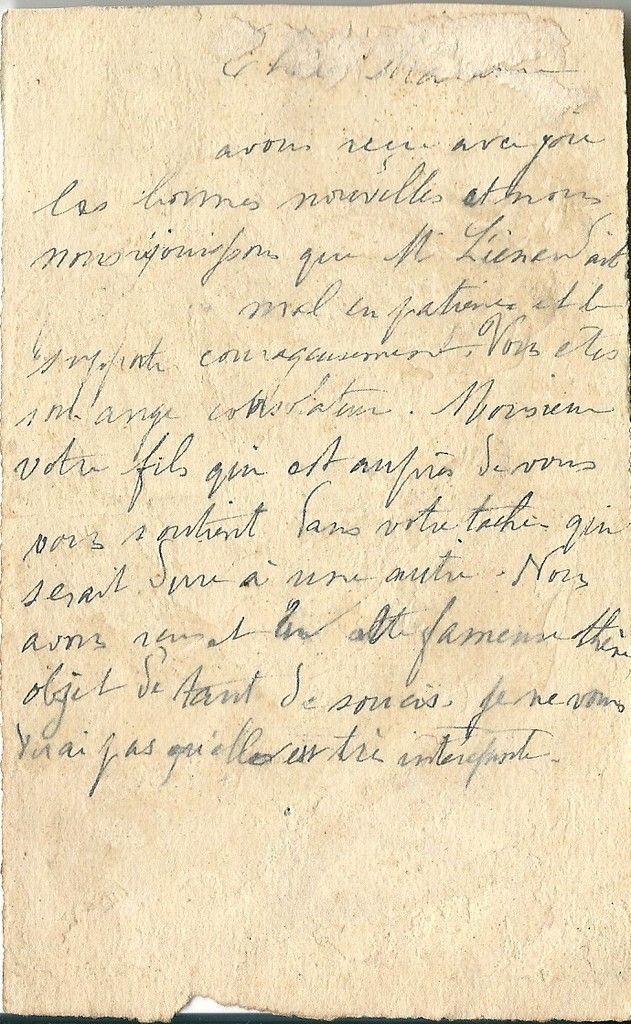 Chère Madame
avons reçu avec joie
les bonnes nouvelles et nous
nous réjouissons que Mr Liénard ait
mal en patience et le
supporte courageusement. Vous etes
son ange consolateur. Monsieur
votre fils qui est auprès de vous
vous soutient dans votre tache qui
serait dure à une autre. Nous
avons fameuse
objet de tant de soucis. Je ne vous
dirai pas qu'elle est très intéressante.